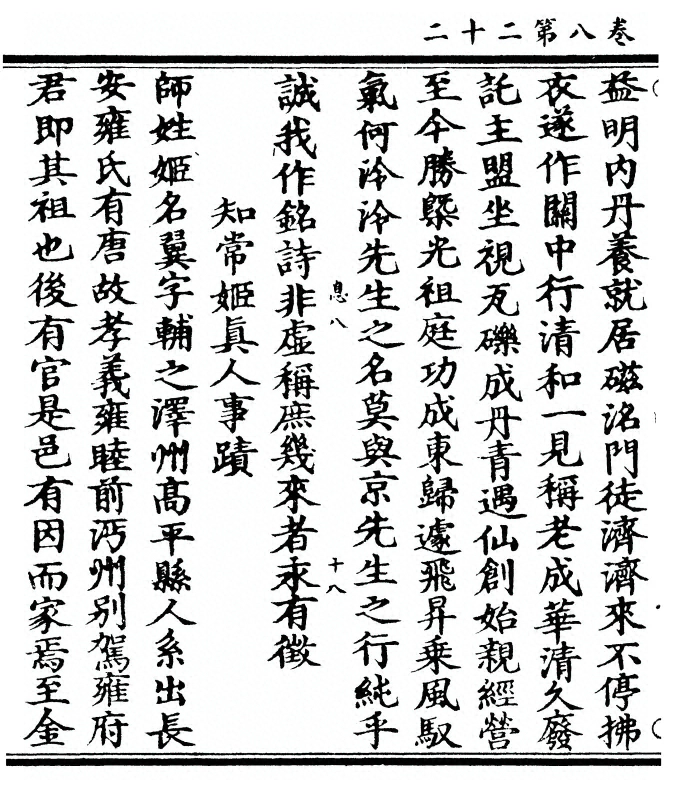 卷八第二十二
益明內丹養就居磁洺門徒濟濟來不停拂
衣遂作關中行清和一見稱老成華清久廢
託主盟坐視瓦礫成丹青遇仙創始親經營
至今勝槩光祖庭功成東歸遽飛昇乘風馭
氣何泠泠先生之名莫與京先生之行純乎
息八
十八
誠我作銘詩非虛稱庶幾來者永有徵
知常姬眞人事蹟
師姓姬名翼字輔之澤州高平縣人系出長
安雍氏有唐故孝義雍睦前沔州別駕雍府
君即其祖也後有官是邑有因而家焉至金